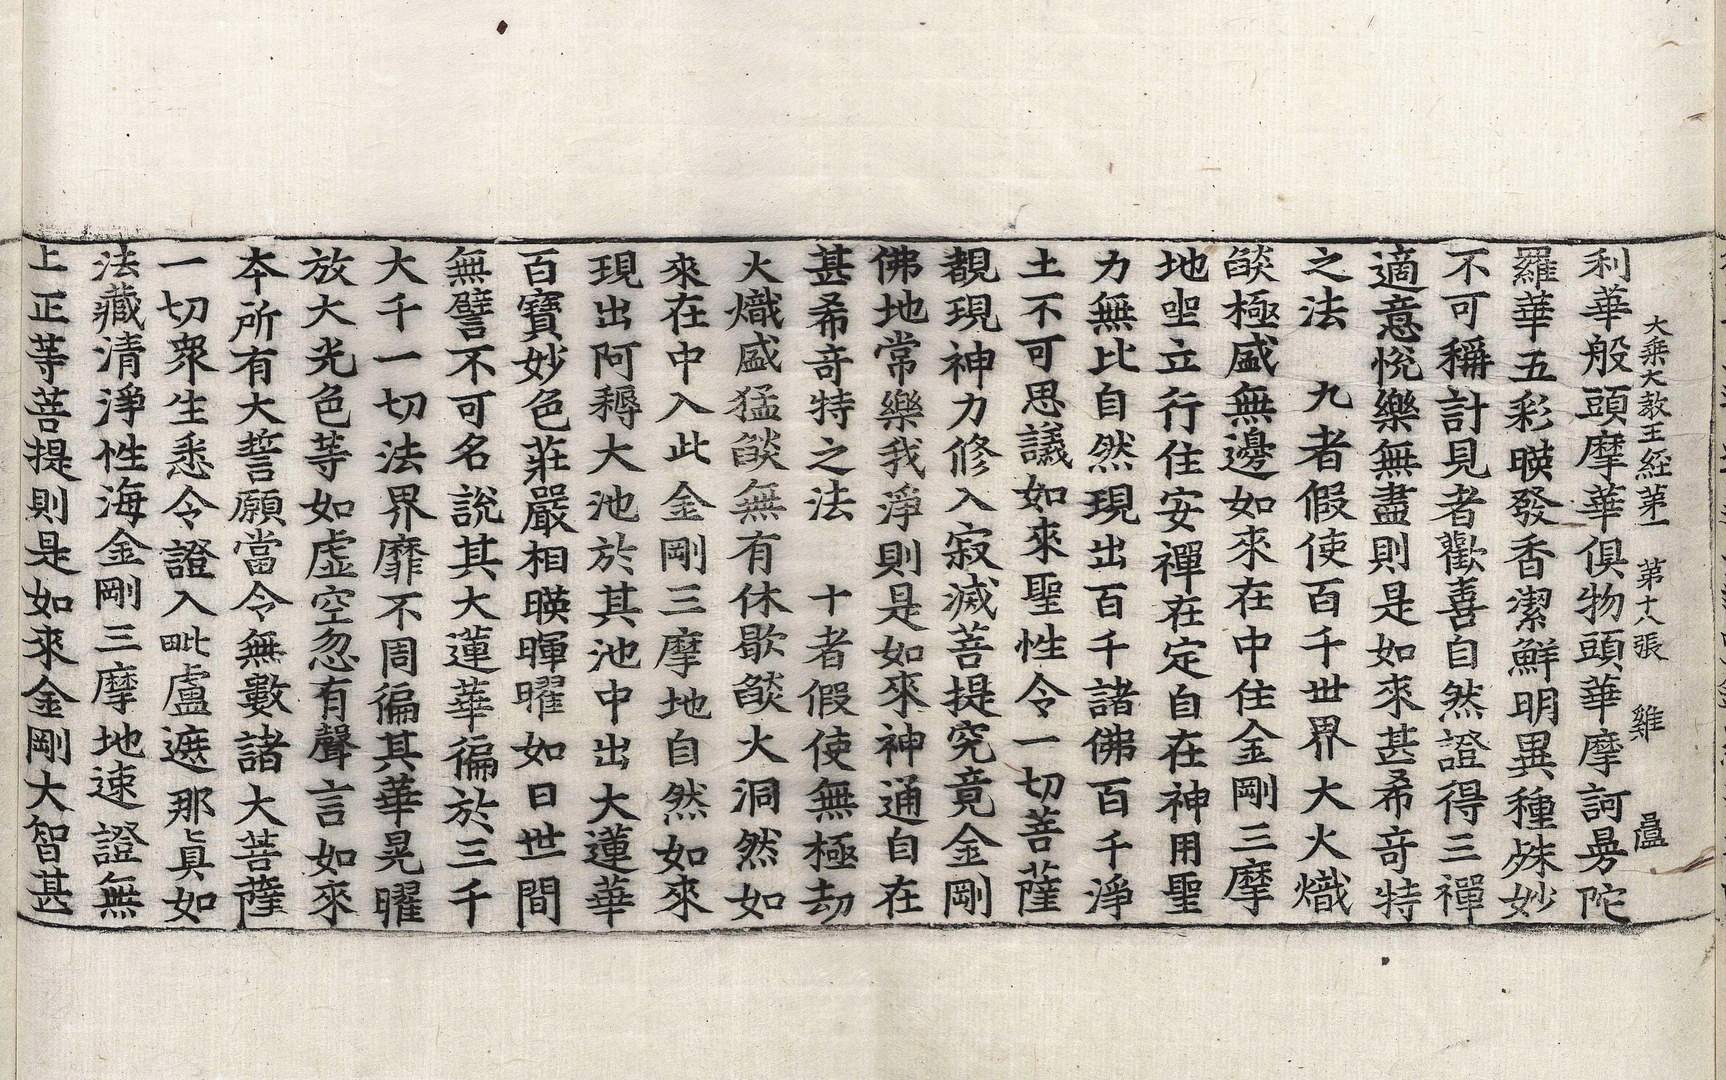 大乘大教王經第一 第十八張 雞
利華般頭摩華俱物頭華摩訶曼陀
羅華五彩暎發香潔鮮明異種殊妙
不可稱計見者歡喜自然證得三禪
適意悅樂無盡則是如來甚希奇特
之法 九者假使百千世界大火熾
燄極盛無邊如來在中住金剛三摩
地坐立行住安禪在定自在神用聖
力無比自然現出百千諸佛百千淨
土不可思議如來聖性令一切菩薩
覩現神力修入寂滅菩提究竟金剛
佛地常樂我淨則是如來神通自在
甚希奇特之法 十者假使無極劫
火熾盛猛燄無有休歇燄火洞然如
來在中入此金剛三摩地自然如來
現出阿耨大池於其池中出大蓮華
百寶妙色莊嚴相暎暉曜如日世間
無譬不可名說其大蓮華徧於三千
大千一切法界靡不周徧其華晃曜
放大光色等如虛空忽有聲言如來
本所有大誓願當令無數諸大菩薩
一切衆生悉令證入毗盧遮那真如
法藏清淨性海金剛三摩地速證無
上正等菩提則是如來金剛大智甚